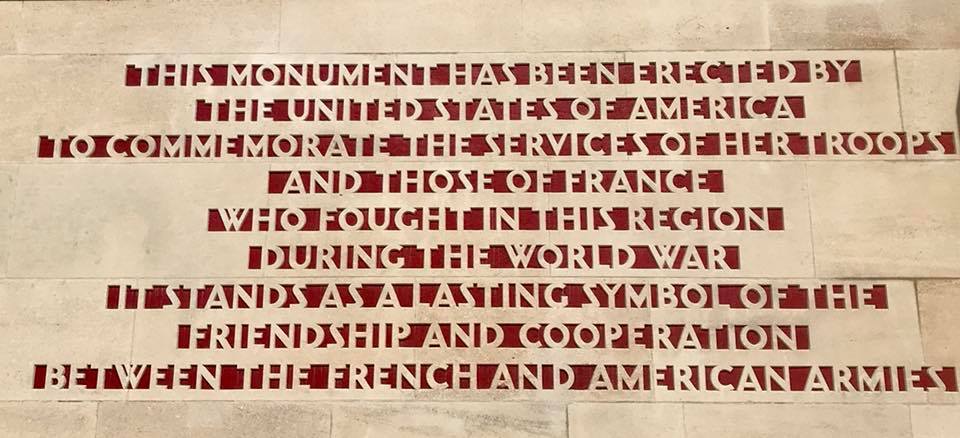 THIS MONUMENT HAS BEEN ERECTED BY
THE UNITED STATES OF AMERICA
TO COMMEMORATE THE SERVICES OF HER TROOPS
AND THOSE OF FRANCE
WHO FOUGHT IN THIS REGION
DURING THE WORLD WAR
IT STANDS AS A LASTING SYMBOL OF THE
FRIENDSHIP AND COOPERATION
BETWEEN THE FRENCH AND AMERICAN ARMIES